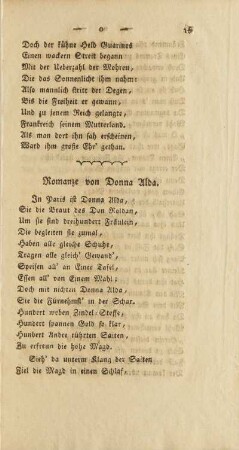 Doch der kühne Held Guarinos
Einen wackern Streit begann
Mit der Ueberzahl der Mohren,
Die das Sonnenlicht ihm nahm:
Also mannlich stritt der Degen,
Bis die Freiheit er gewann,
Und zu jenem Reich gelangte,
Frankreich seinem Mutterland.
Als man dort ihn sah erscheinen,
Ward ihm große Ehr' gethan.
Romanze von Donna Alda.
In Paris ist Donna Alda,
Sie die Braut des Don Roldan,
Um sie sind dreihundert Fräulein,
Die begleiten sie zumal,
Haben alle gleiche Schuhe,
Tragen alle gleich' Gewand',
Speisen all' an Einer Tafel,
Essen all' von Einem Mahl;
Doch mit nichten Donna Alda,
Sie die Fürnehmst' in der Schar.
Hundert woben Zindel-Stoffe,
Hundert spannen Gold so klar,
Hundert Andre rührten Saiten,
Zu erfreun die hohe Magd.
Sieh' da unterm Klang der Saiten
Fiel die Magd in einen Schlaf,